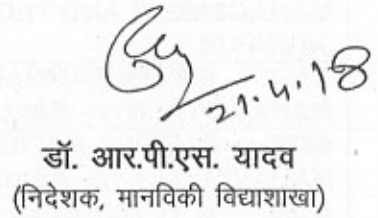 21.4.18
डॉ. आर.पी.एस. यादव
(निदेशक, मानविकी विद्याशाखा)